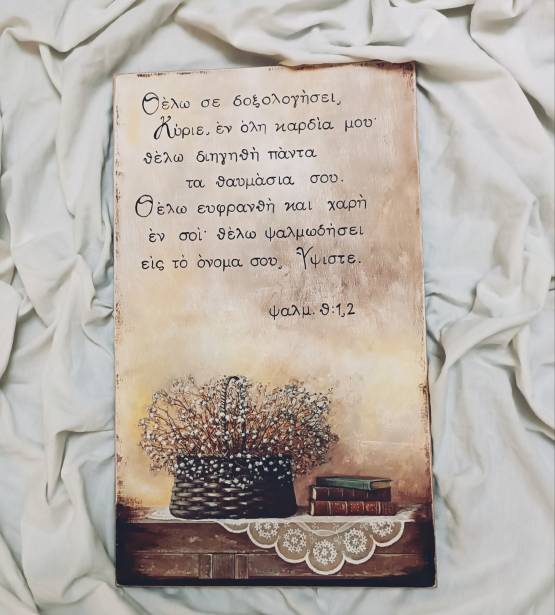 Θέλω σε δοξολογήσει,
Κύριε, ἐν ὅλη καρδία μου·
θέλω διηγηθή πάντα
τα θαυμάσια σου.
Θέλω ευφρανθή και χαρή
ἐν σοί· θέλω ψαλμωδήσει
εἰς τὸ ὄνομα σου, Ύψιστε.
ψαλμ. θ:1,2